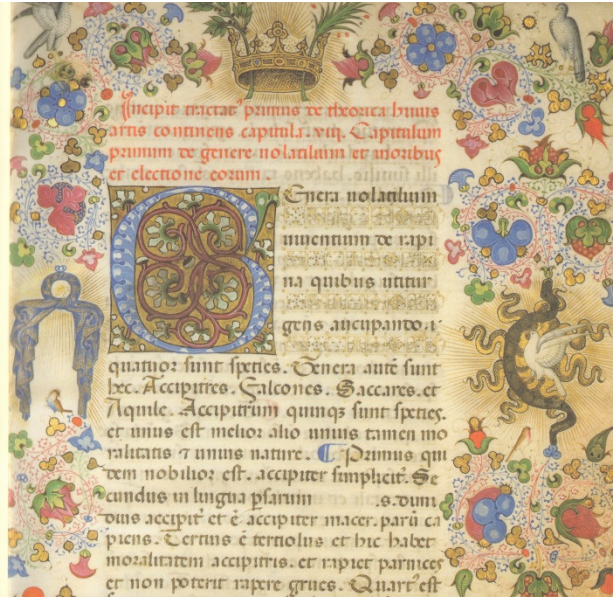 Incipit tractat' primus de theorica huius
artis continens capitula .viij. Capitulum
primum de genere uolatilium et moribus
et electione eorum
Genera uolatilium
uiuentium de rapi
na quibus utitur
gens aucupando .i
quatuor sunt species. Genera autē sunt
hec. Accipitres. Falcones. Saccares. et
Aquile. Accipitrum quinqꝫ sunt species.
et unus est melior alio unius tamen mo
ralitatis ⁊ unius nature. Primus qui
dem nobilior est. accipiter simplicit'. Se
cundus in lingua psarum .s. duni
duis accipit' et ē accipiter macer. parū ca
piens. Tertius ē tertiolus et hic habet
moralitatem accipitris. et rapiet parnices
et non poterit rapere grues. Quart' est